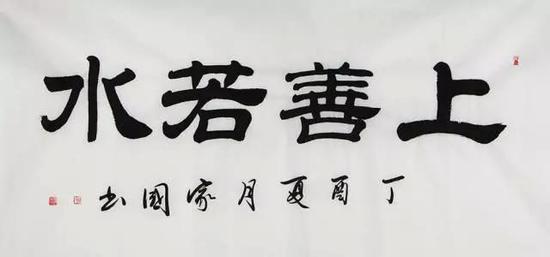 上善若水
丁酉夏月家國书